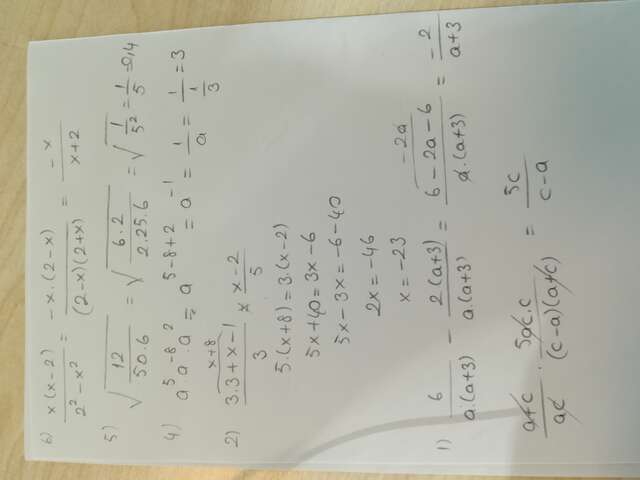 6) x(x-2)/(2²-x²) = -x.(2-x)/((2-x)(2+x)) = -x/(x+2)
5) √(12/(50.6)) = √(6.2/(2.25.6)) = √(1/5²) = 1/5 = 0,4
4) a⁵.a⁻⁸.a² = a⁵⁻⁸⁺² = a⁻¹ = 1/a = 1/(1/3) = 3
x+8
2) (3.3+x-1)/3 × (x-2)/5
5.(x+8) = 3.(x-2)
5x+40 = 3x-6
5x-3x = -6-40
2x = -46
x = -23
-2a
1) 6/(a.(a+3)) - 2(a+3)/(a.(a+3)) = (6-2a-6)/(a.(a+3)) = -2/(a+3)
(a+c)/(ac) . (5ac.c)/((c-a)(a+c)) = 5c/(c-a)